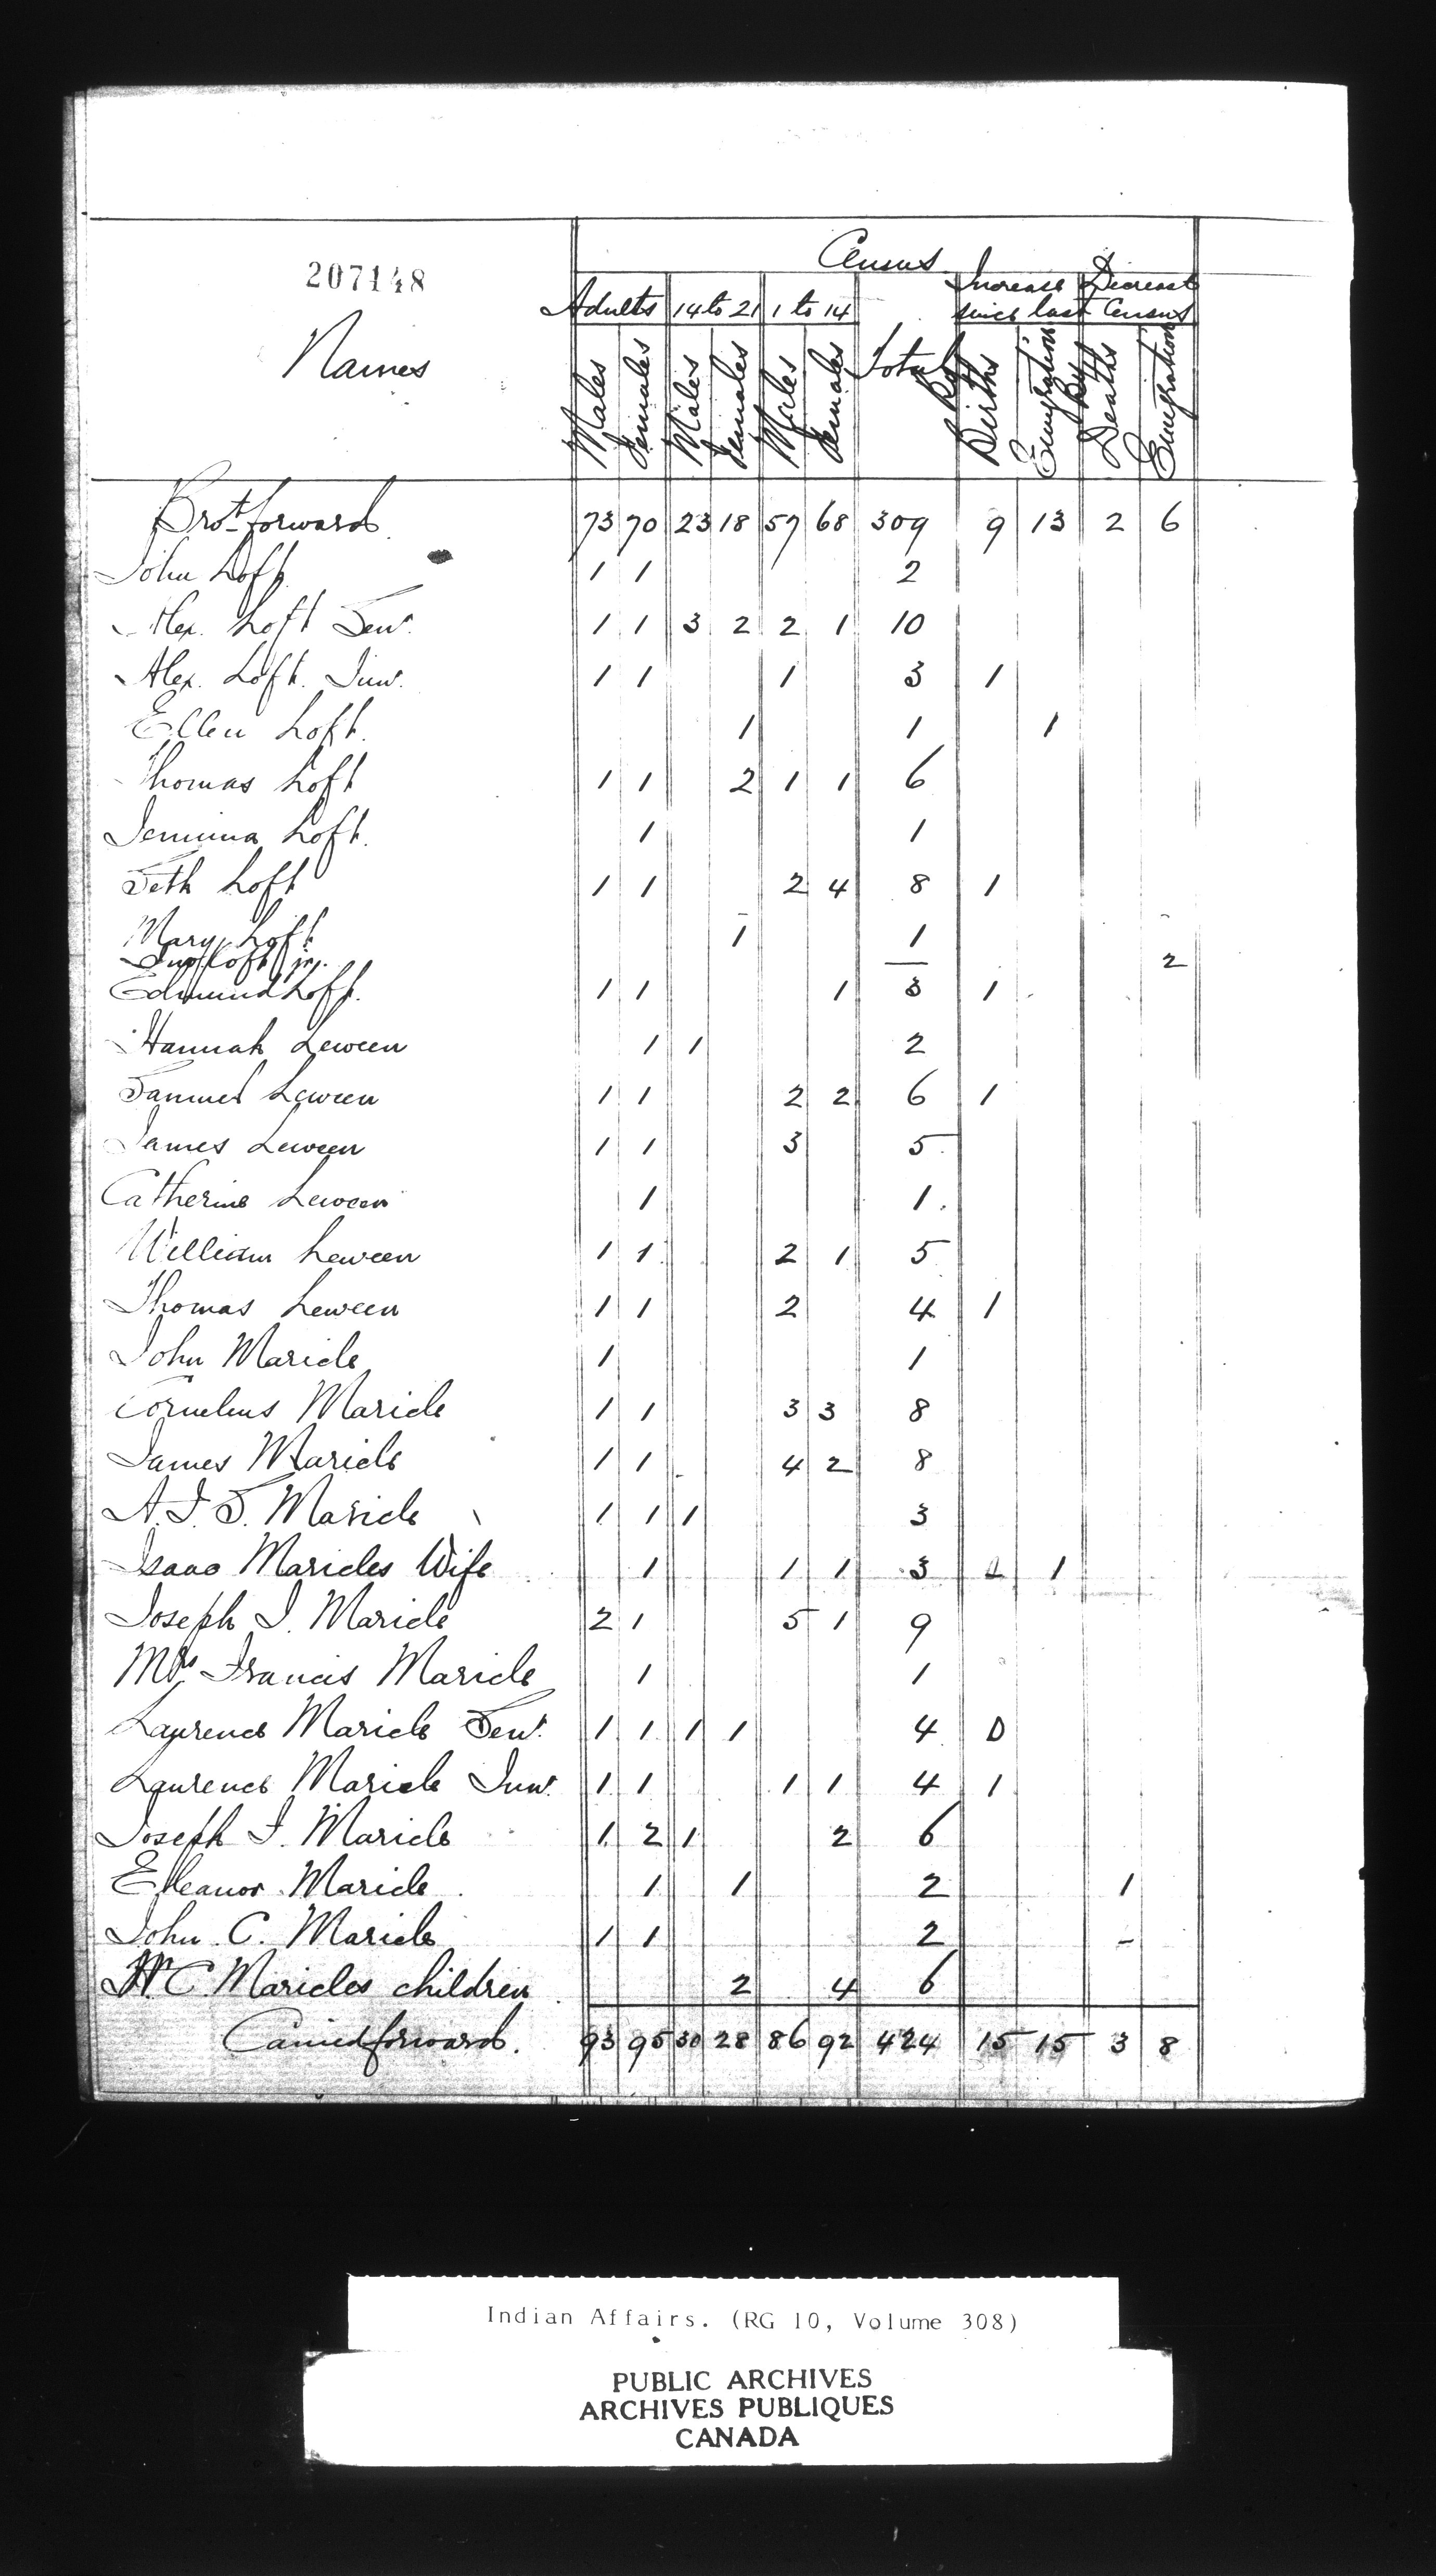 207148
Names
Census
Adults 14 to 21 1 to 14 Total Increase since last Decrease Census
Males Females Males Females Males Females By Births Emigration By Deaths Emigration
Brot. forward 73 70 23 18 57 68 309 9 13 2 6
John Loft 1 1 2
Alex. Loft Senr. 1 1 3 2 2 1 10
Alex. Loft. Junr. 1 1 1 3 1
Ellen Loft. 1 1 1
Thomas Loft 1 1 2 1 1 6
Jemima Loft. 1 1
Seth Loft 1 1 2 4 8 1
Mary Loft 1 1
Jno Loft jr. — 2
Edmund Loft. 1 1 1 3 1
Hannah Leween 1 1 2
Samuel Leween 1 1 2 2 6 1
James Leween 1 1 3 5
Catherine Leween 1 1
William Leween 1 1 2 1 5
Thomas Leween 1 1 2 4 1
John Maricle 1 1
Cornelius Maricle 1 1 3 3 8
James Maricle 1 1 4 2 8
A. J. S. Maricle 1 1 1 3
Isaac Maricles Wife 1 1 1 3 1
Joseph J. Maricle 2 1 5 1 9
Mrs Francis Maricle 1 1
Laurence Maricle Senr. 1 1 1 1 4 0
Laurence Maricle Junr. 1 1 1 1 4 1
Joseph I. Maricle 1 2 1 2 6
Eleanor Maricle 1 1 2 1
John C. Maricle 1 1 2 -
C. Maricles children 2 4 6
Carried forward. 93 95 30 28 86 92 424 15 15 3 8
Indian Affairs. (RG 10, Volume 308)
PUBLIC ARCHIVES
ARCHIVES PUBLIQUES
CANADA